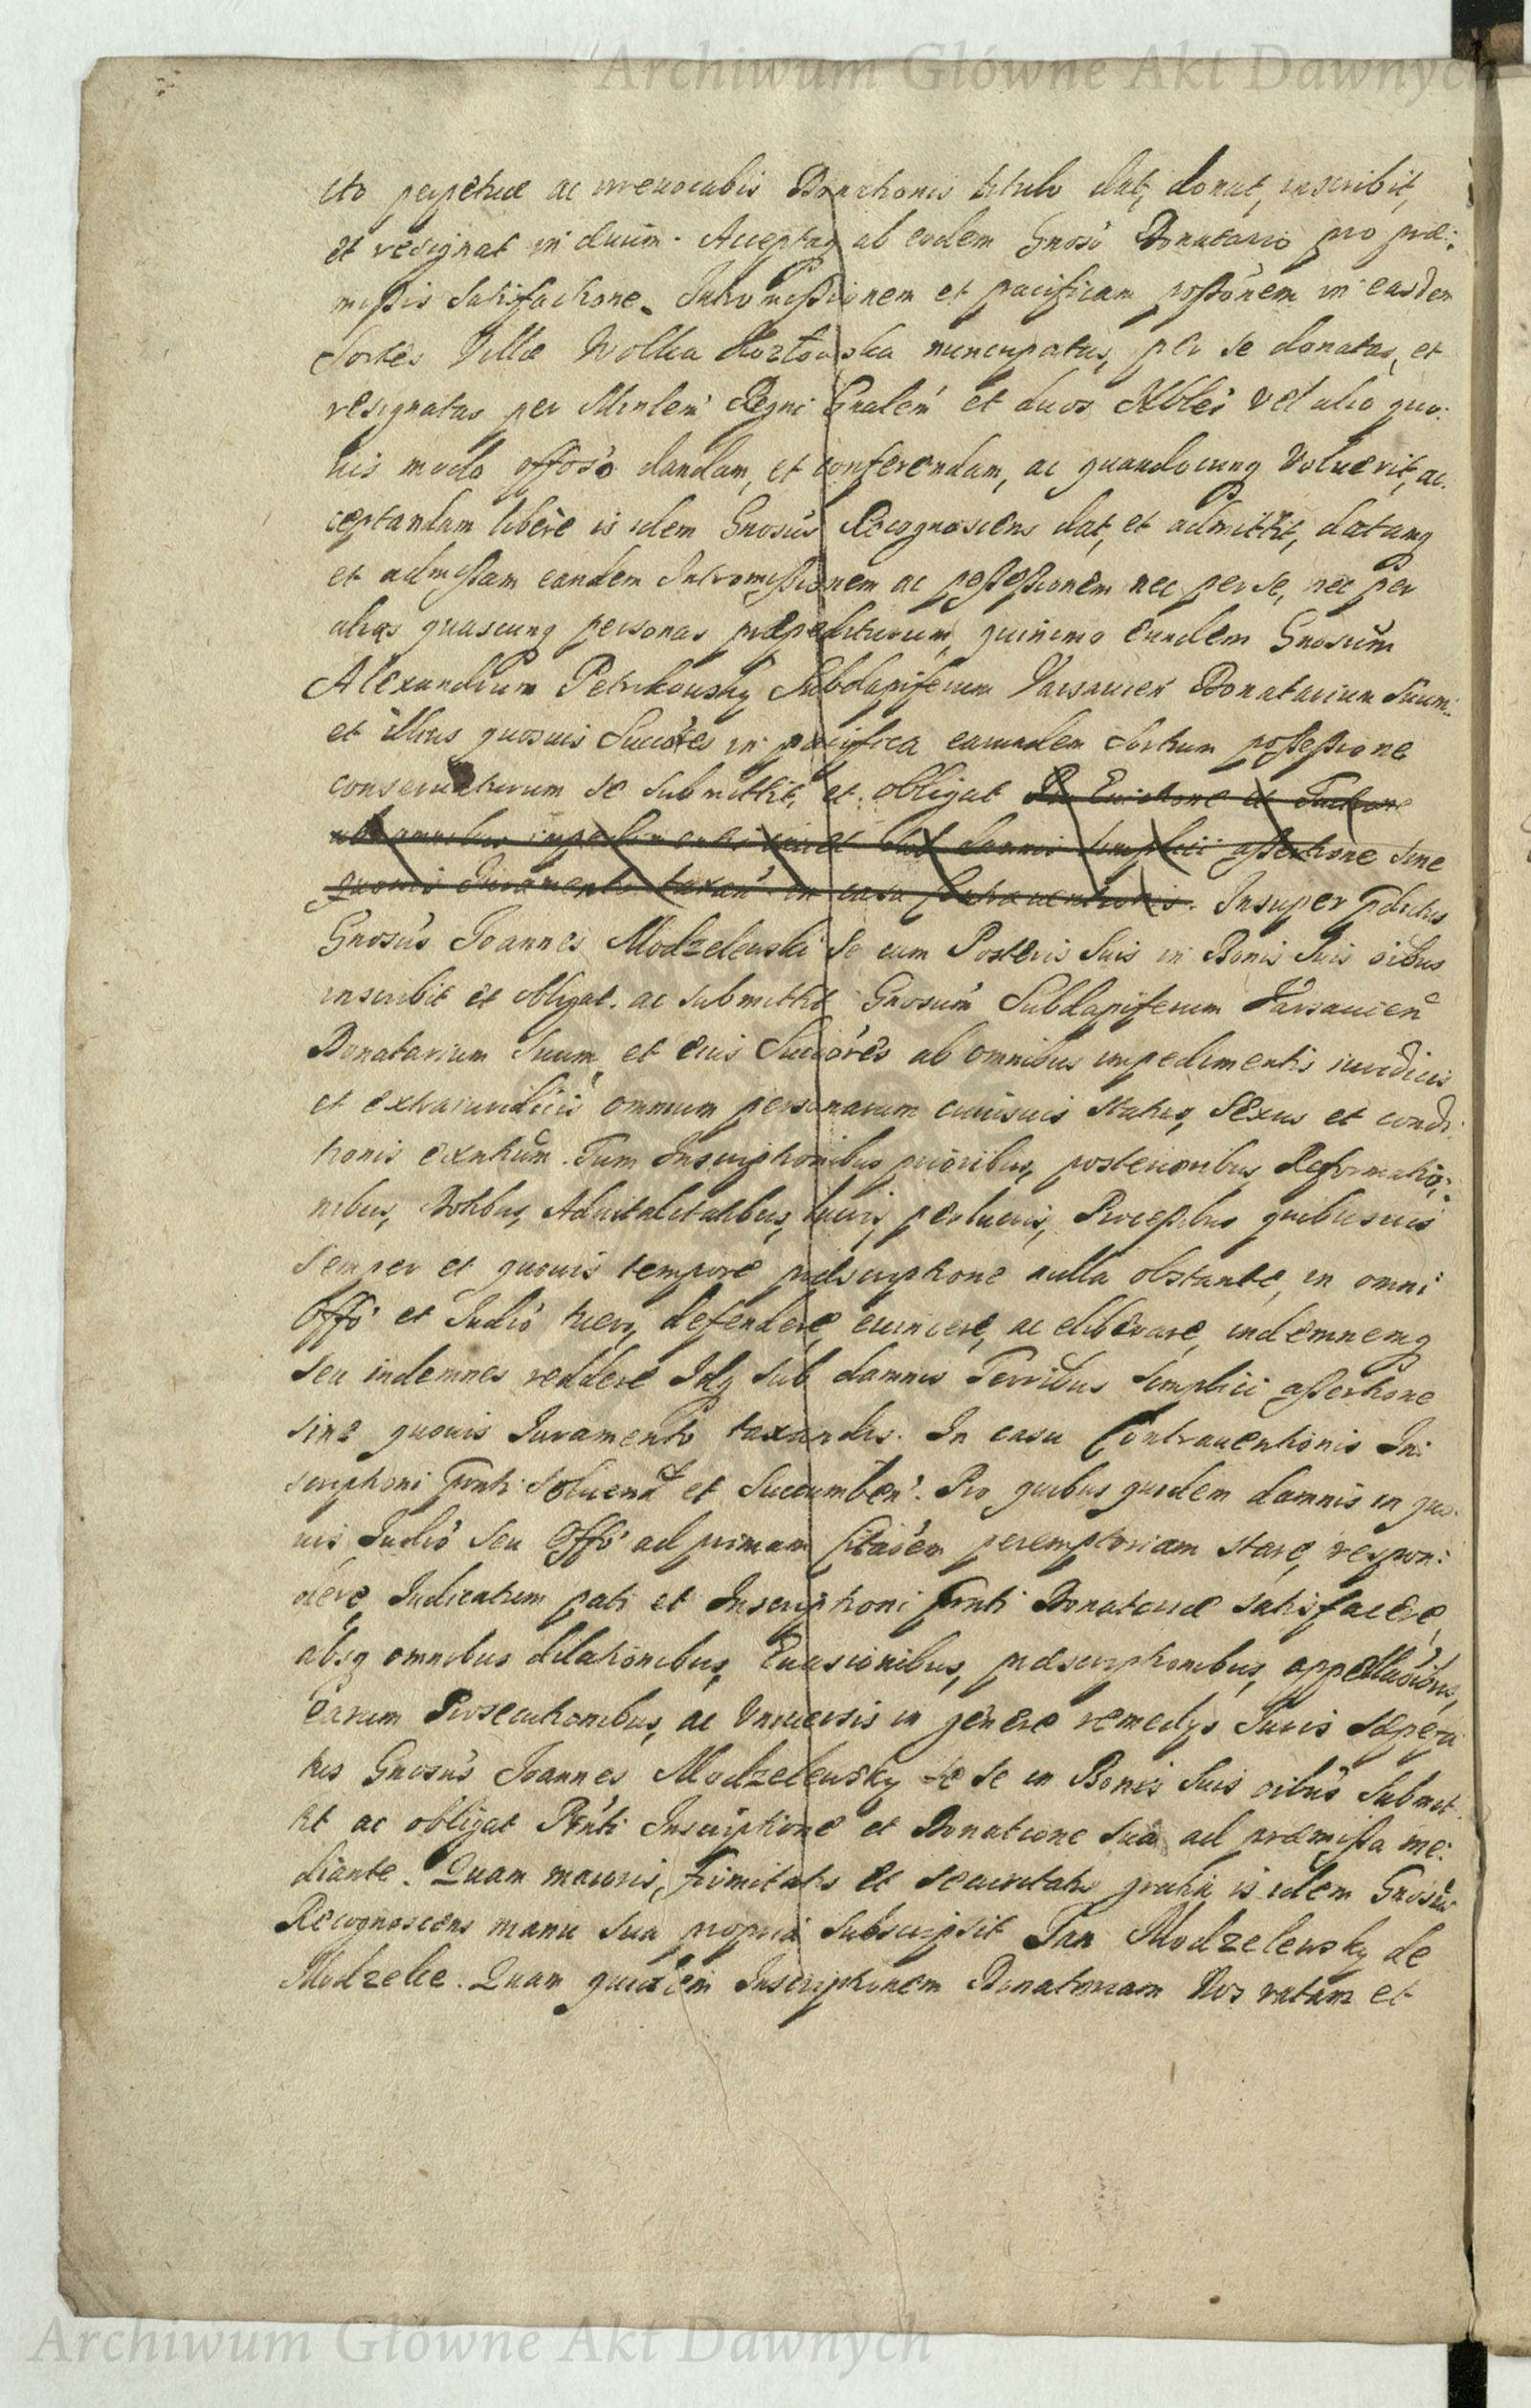 Archiwum Główne Akt Dawnych
ito perpetuæ ac irreuocabis Donationis titulo dat, donat, inscribit,
et resignat in ævum. Acceptaq ab eodem Gnoso Donatario pro præ:
missis satisfactione. Intromissionem et pacificam possonem in easdem
Sortes Villæ Wolka Kozłowska nuncupatas, per se donatas, et
resignatas per Minlem Regni Gnalem et duos Nbles vel alio quo:
uis modo offoso dandam, et conferendam, ac quandocunq Voluerit, ac:
ceptandam libere is idem Gnosus Recognoscens dat, et admittit, datamq
et admissam eandem Intromissionem ac possessionem nec per se, nec per
alias quascunq personas præpediturum, quinimo eundem Gnosum
Alexandrum Petrikowsky Subdapiferum Varsauien Donatarium Suum:
et illius quosuis Succores in pacifica earundem Sortium possessione
conseruaturum se submittit, et obligat De Euictione et Tuitione
ab omnibus impedimentis sub damnis simplici assertione sine
quouis Iuramento taxan in casu Contrauentionis. Insuper pdictus
Gnosus Joannes Modzelewski Se cum Posteris Suis in Bonis Suis oibus
inscribit et obligat. ac submittit Gnosum Subdapiferum Varsauien
Donatarium Suum, et eius Succores ab omnibus impedimentis iuridicis
et extraiuridicis omnium personarum cuiusuis Status, Sexus et condi:
tionis exntium. Tum Inscriptionibus prioribus, posterioribus Reformatio:
nibus, Dotibus, Aduitalitatibus, lucris, perlucris, Processibus quibusuis
Semper et quouis tempore præscriptione nulla obstante, in omni
Offo et Iudio tueri, defendere, euincere, ac eliberare, indemnemq
seu indemnes reddere Idq sub damnis Terribus simplici assertione
sine quouis Iuramento taxandis. In casu Contrauentionis In:
scriptioni pnti Soluend et Succumben. Pro quibus quidem damnis in quo:
uis Iudio seu Offo ad primam Citaoem peremptoriam stare, respon:
dere, Iudicatum pati et Inscriptioni pnti Donatoriæ satisfacere,
absq omnibus dilationibus, Euasionibus, præscriptionibus, appellaoibus,
earum Prosecutionibus, ac Vniuersis in genere remedys Iuris Sæpefa
tus Gnosus Joannes Modzelewsky se se in Bonis Suis oibus Submit
tit ac obligat Pnti Inscriptione et Donatione sua ad præmissa me:
diante. Quam maioris, firmitatis et securitatis gratia is idem Gnosus
Recognoscens manu sua propria subscripsit Jan Modzelewsky de
Modzele. Quam quidem Inscriptionem Donatoriam Nos ratam et
Archiwum Główne Akt Dawnych